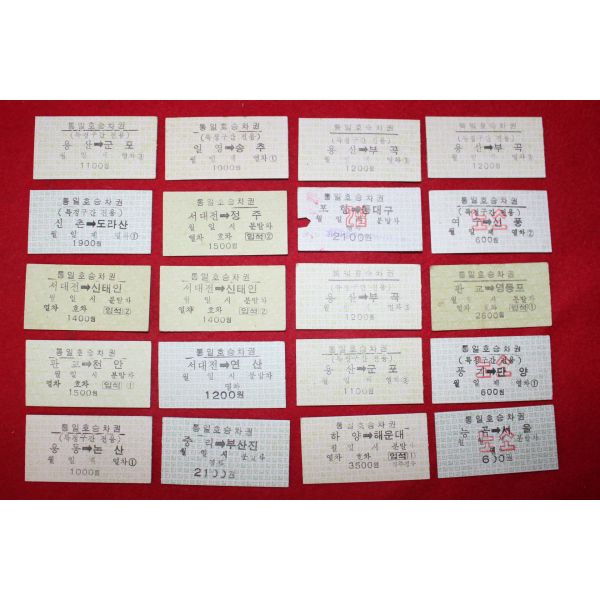 통일호승차권
(특정구간 전용)
용산➡군포
월 일 제 열차③
1100원
통일호승차권
(특정구간 전용)
일영➡송추
월 일 제 열차①
1000원
통일호승차권
(특정구간 전용)
용산➡부곡
월 일 제 열차③
1200원
통일호승차권
(특정구간 전용)
용산➡부곡
월 일 제 열차③
1200원
통일호승차권
(특정구간 전용)
신촌➡도라산
월 일 제 열차①
1900원
통일호승차권
서대전➡정주
월 일 시 분발차
열차 호차 [입석]②
1500원
통일호승차권
포항➡동대구
월 일
2100원
통일호승차권
(특정구간 전용)
여수➡신풍
월 일 제 열차②
600원
통일호승차권
서대전➡신태인
월 일 시 분발차
열차 호차 [입석]②
1400원
통일호승차권
서대전➡신태인
월 일 시 분발차
열차 호차 [입석]②
1400원
통일호승차권
(특정구간 전용)
용산➡부곡
월 일 제 열차③
1200원
통일호승차권
판교➡영등포
월 일 시 분발차
열차 호차 [입석]①
2600원
통일호승차권
판교➡천안
월 일 시 분발차
열차 호차 [입석]①
1500원
통일호승차권
서대전➡연산
월 일 시 분발차
열차
1200원
통일호승차권
(특정구간 전용)
용산➡군포
월 일 제 열차③
1100원
통일호승차권
(특정구간 전용)
풍기➡단양
월 일 제 열차①
600원
통일호승차권
(특정구간 전용)
용동➡논산
월 일 제 열차①
1000원
통일호승차권
중리➡부산진
월 일 시 분발차
2100원
통일호승차권
하양➡해운대
월 일 시 분발차
열차 호차 [입석]①
3500원 경주경유
통일호승차권
능곡➡서울
소
600원